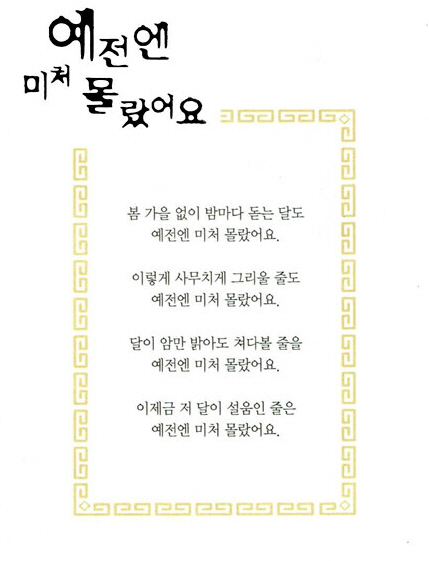 예전엔
미처 몰랐어요
봄 가을 없이 밤마다 돋는 달도
예전엔 미처 몰랐어요.
이렇게 사무치게 그리울 줄도
예전엔 미처 몰랐어요.
달이 암만 밝아도 쳐다볼 줄을
예전엔 미처 몰랐어요.
이제금 저 달이 설움인 줄은
예전엔 미처 몰랐어요.